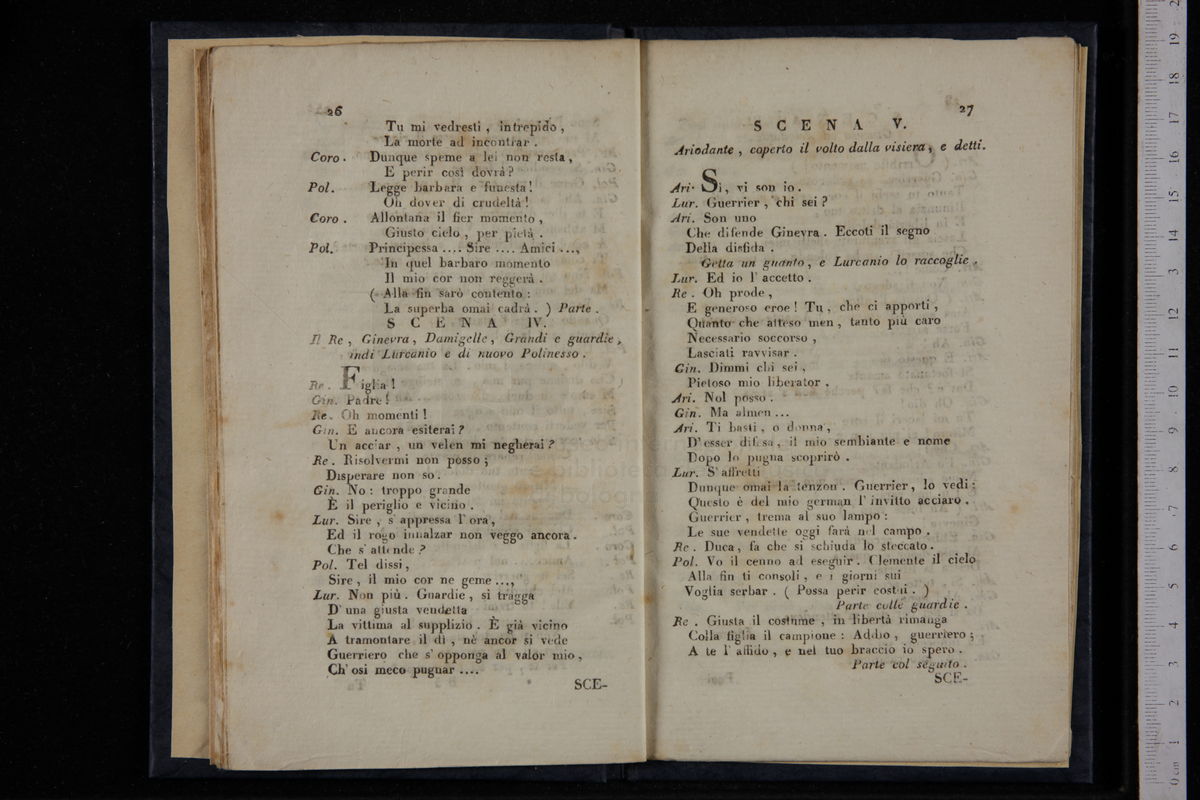 26
Tu mi vedresti , intrepido ,
La morte ad incontrar .
Coro . Dunque speme a lei non resta ,
E perir così dovrà ?
Pol. Legge barbara e funesta !
Oh dover di crudeltà !
Coro . Allontana il fier momento ,
Giusto cielo , per pietà .
Pol. Principessa .... Sire .... Amici ...,
In quel barbaro momento
Il mio cor non reggerà .
( Alla fin sarò contento :
La superba omai cadrà . ) Parte .
S C E N A IV.
Il Re , Ginevra , Damigelle , Grandi e guardie ,
indi Lurcanio e di nuovo Polinesso .
Re . Figlia !
Gin. Padre !
Re . Oh momenti !
Gin. E ancora esiterai ?
Un acciar , un velen mi negherai ?
Re . Risolvermi non posso ;
Disperare non so .
Gin. No : troppo grande
È il periglio e vicino .
Lur. Sire , s' appressa l' ora ,
Ed il rogo innalzar non veggo ancora .
Che s' attende ?
Pol. Tel dissi ,
Sire , il mio cor ne geme ...,
Lur. Non più . Guardie , si tragga
D' una giusta vendetta
La vittima al supplizio . È già vicino
A tramontare il dì , nè ancor si vede
Guerriero che s' opponga al valor mio ,
Ch' osi meco pugnar ....
SCE-
27
S C E N A V.
Ariodante , coperto il volto dalla visiera , e detti.
Ari. Si , vi son io .
Lur. Guerrier , chi sei ?
Ari. Son uno
Che difende Ginevra . Eccoti il segno
Della disfida .
Getta un guanto , e Lurcanio lo raccoglie .
Lur. Ed io l' accetto .
Re . Oh prode ,
E generoso eroe ! Tu , che ci apporti ,
Quanto che atteso men , tanto più caro
Necessario soccorso ,
Lasciati ravvisar .
Gin. Dimmi chi sei ,
Pietoso mio liberator .
Ari. Nol posso .
Gin. Ma almen ...
Ari. Ti basti , o donna ,
D' esser difesa , il mio sembiante e nome
Dopo la pugna scoprirò .
Lur. S' affretti
Dunque omai la tenzon . Guerrier , lo vedi :
Questo è del mio german l' invitto acciaro .
Guerrier , trema al suo lampo :
Le sue vendette oggi farà nel campo .
Re . Duca , fa che si schiuda lo steccato .
Pol. Vo il cenno ad eseguir . Clemente il cielo
Alla fin ti consoli , e i giorni sui
Voglia serbar . ( Possa perir costui . )
Parte colle guardie .
Re . Giusta il costume , in libertà rimanga
Colla figlia il campione : Addio , guerriero ;
A te l' affido , e nel tuo braccio io spero .
Parte col seguito .
SCE-